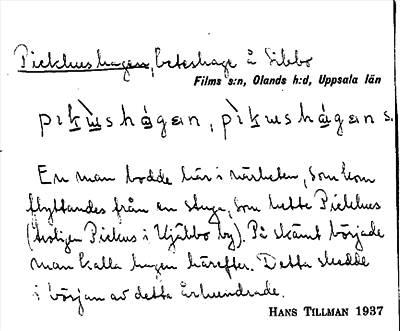 Pickhushagen, beteshage å Sibbo
Films s:n, Olands h:d, Uppsala län
pikùshágan, pìkushágan s.
En man bodde här i närheten, som kom
flyttandes från en stuga, som hette Pickhus
(troligen Pickus i Kjälbo by). På skämt började
man kalla hagen härefter. Detta skedde
i början av detta århundrade.
HANS TILLMAN 1937